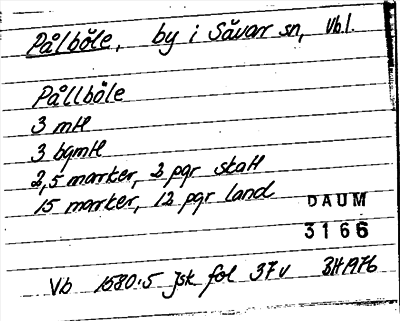 Pålböle, by i Sävar sn, Vbl.
Pållböle
3 mtl
3 bgmtl
2,5 marker, 2 pgr skatt
15 marker, 12 pgr land
DAUM
3166
Vb 1580:5 jsk fol 37v BH 1976